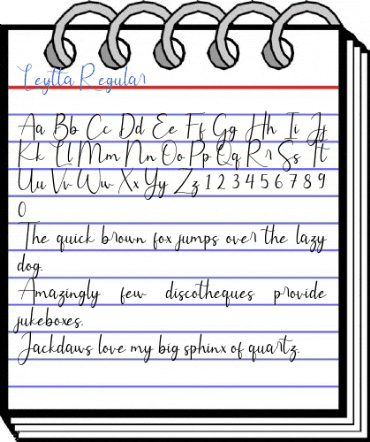 Leytta Regular
Aa Bb Cc Dd Ee Ff Gg Hh Ii Jj
Kk Ll Mm Nn Oo Pp Qq Rr Ss Tt
Uu Vv Ww Xx Yy Zz 1 2 3 4 5 6 7 8 9
0
The quick brown fox jumps over the lazy
dog.
Amazingly few discotheques provide
jukeboxes.
Jackdaws love my big sphinx of quartz.